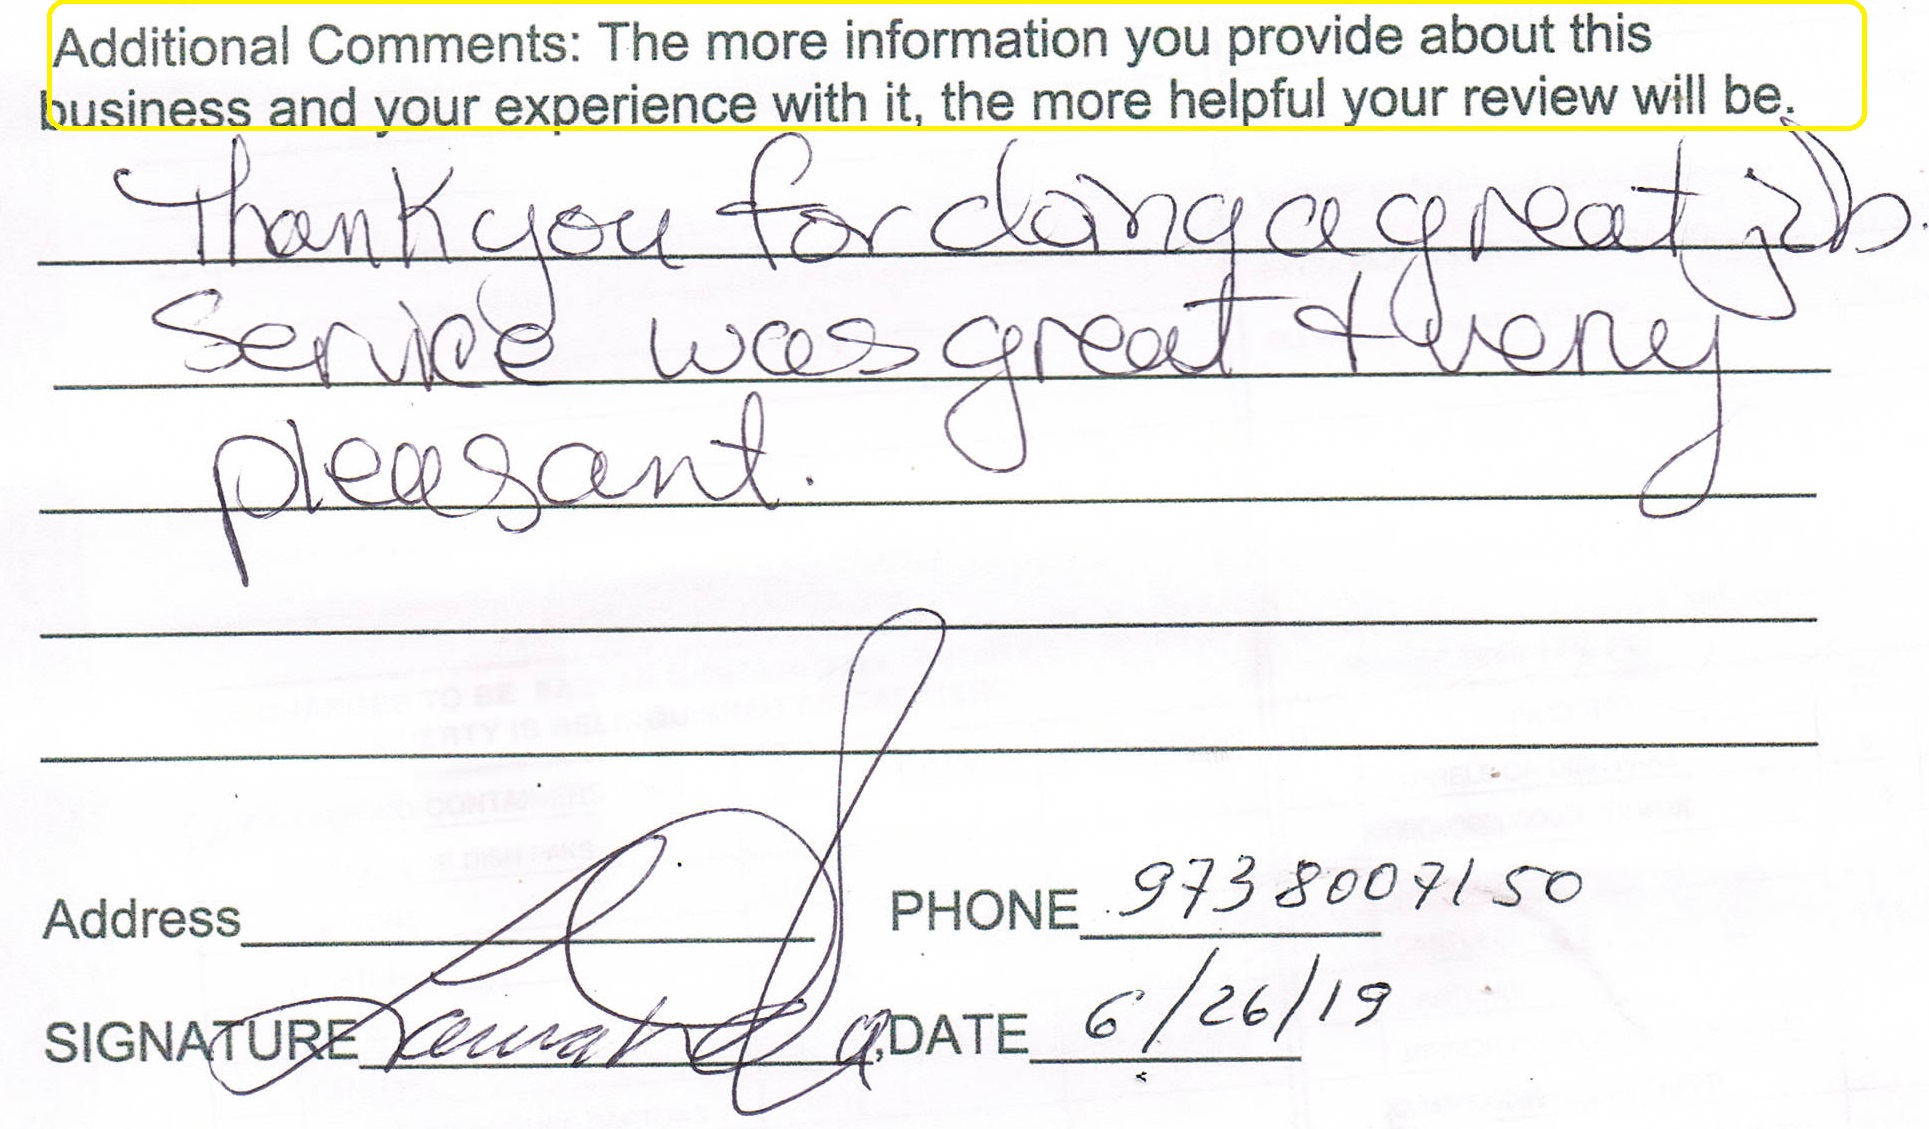 Additional Comments: The more information you provide about this
business and your experience with it, the more helpful your review will be.
Thank you for doing a great job.
Service was great & very
pleasant.
Address PHONE 9738007150
SIGNATURE DATE 6/26/19